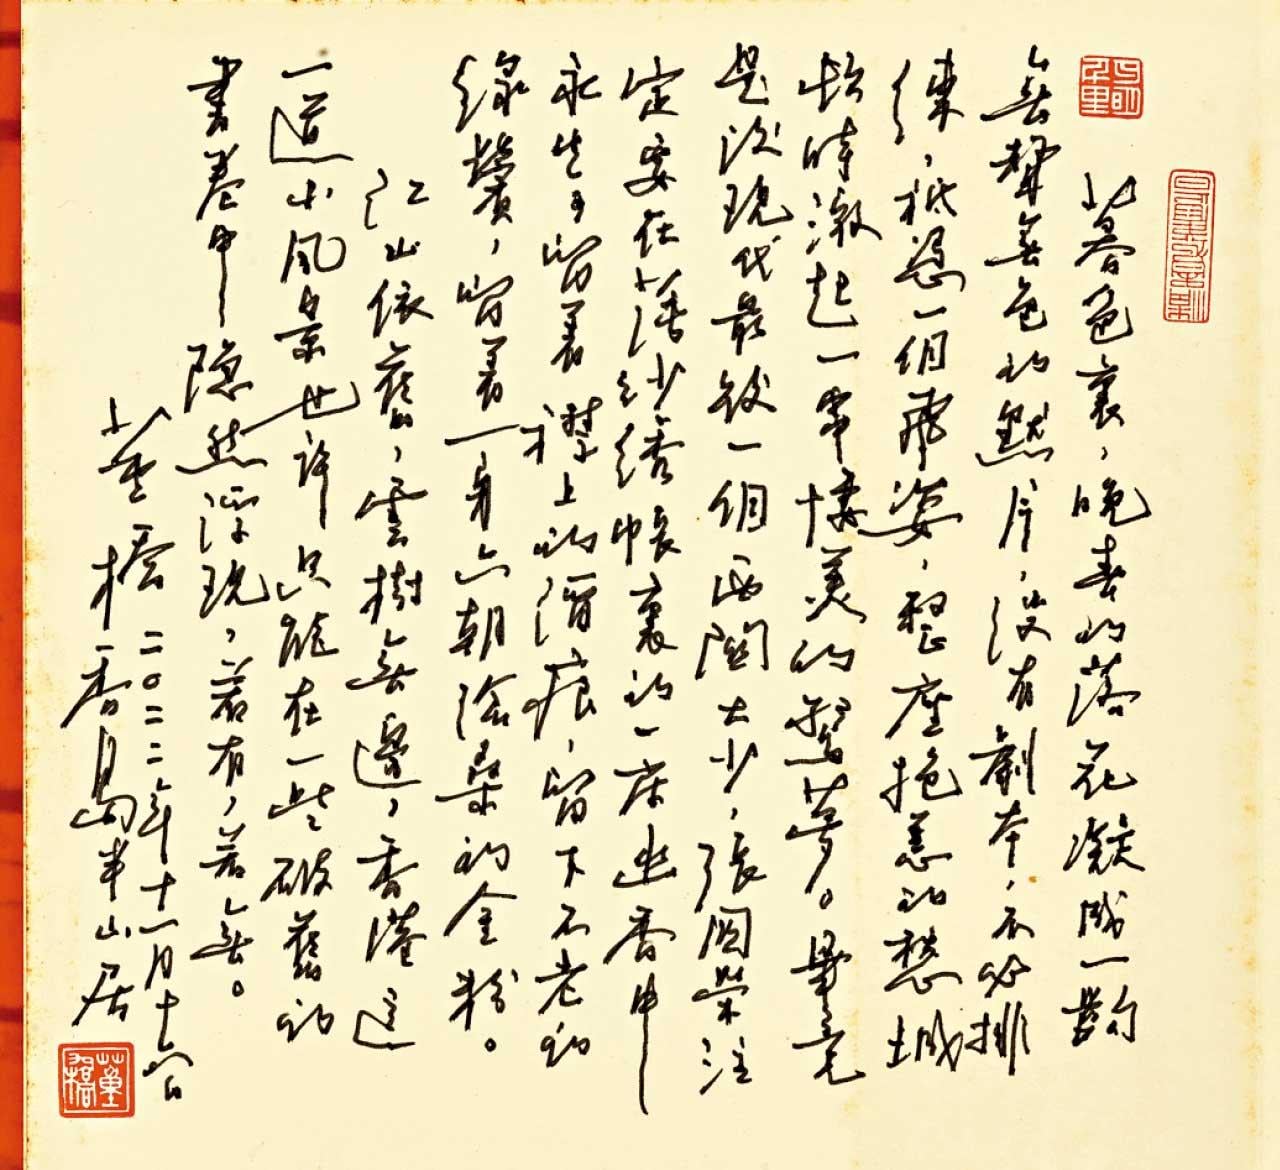 暮色裏，晚春的落花凝成一齣
無聲無色的默片，沒有劇本，不必排
練，祇憑一個飛姿，整座抱恙的愁城
頓時激起一串悽美的驚夢。畢竟
是沒現代最後一個西關大少，張國榮注
定要在薄紗綉帳裏的一床幽香中
永生了留着襟上的酒痕，留下不老的
綠鬢，留着一身六朝滄桑的金粉。
江山依舊，雲樹無邊，香港這
一道小風景也許只能在一些破舊的
書卷中隱然浮現，若有，若無。
董橋 二〇二二年十一月十六日
香島半山居
董橋